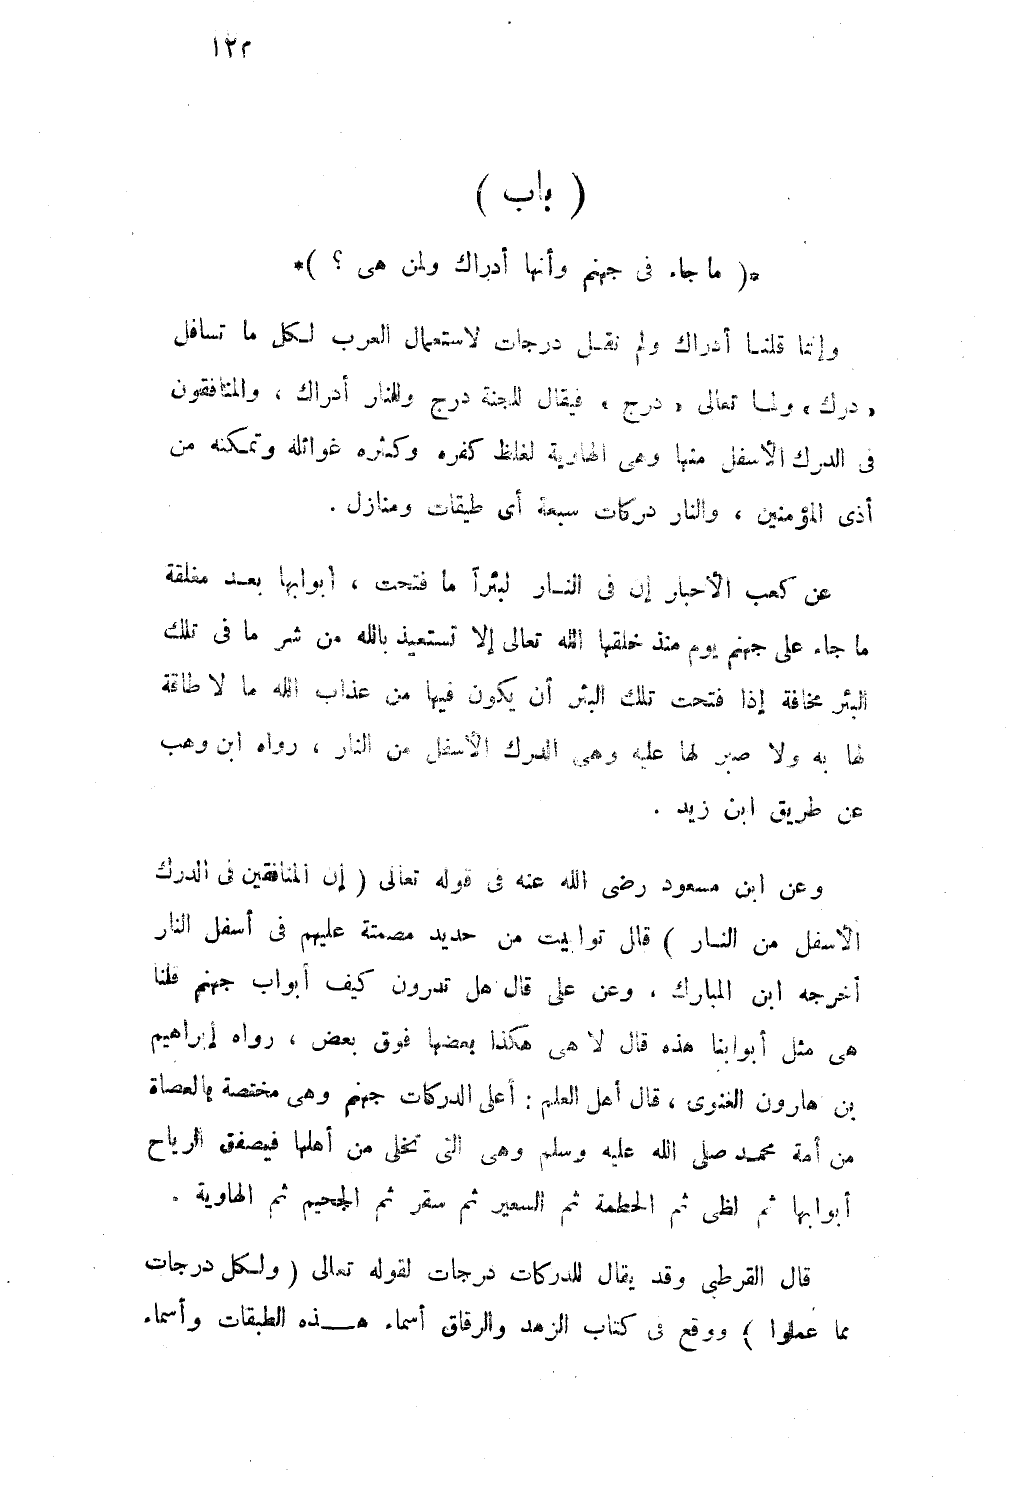 ١٢٣
( باب )
*( ما جاء فى جهنم وأنها أدراك ولمن هى ؟ )*
وإنما قلنـا أدراك ولم نقـل درجات لاستعمال العرب لـكل ما تسافل
« درك » ولمـا تعالى « درج » فيقال للجنة درج وللنار أدراك ، والمنافقون
فى الدرك الأسفل منها وهى الهاوية لغلظ كفره وكثره غوائله وتمكنه من
أذى المؤمنين ، والنار دركات سبعة أى طبقات ومنازل .
عن كعب الأحبار إن فى النـار لبئرآ ما فتحت ، أبوابها بعـد مغلقة
ما جاء على جهنم يوم منذ خلقها الله تعالى إلا تستعيذ بالله من شر ما فى تلك
البئر مخافة إذا فتحت تلك البئر أن يكون فيها من عذاب الله ما لا طاقة
لها به ولا صبر لها عليه وهى الدرك الأسفل من النار ، رواه ابن وهب
عن طريق ابن زيد .
وعن ابن مسعود رضى الله عنه فى قوله تعالى ( إن المنافقين فى الدرك
الأسفل من النـار ) قال توابيت من حديد مصمتة عليهم فى أسفل النار
أخرجه ابن المبارك ، وعن على قال هل تدرون كيف أبواب جهنم قلنا
هى مثل أبوابنا هذه قال لا هى هكذا بعضها فوق بعض ، رواه إبراهيم
بن هارون الغنوى ، قال أهل العلم : أعلى الدركات جهنم وهى مختصة بالعصاة
من أمة محمـد صلى الله عليه وسلم وهى التى تخلى من أهلها فيصفق الرياح
أبوابها ثم لظى ثم الحطمة ثم السعير ثم سقر ثم الجحيم ثم الهاوية .
قال القرطبى وقد يقال للدركات درجات لقوله تعالى ( ولـكل درجات
مما عملوا ) ووقع فى كتاب الزهد والرقاق أسماء هـــذه الطبقات وأسماء